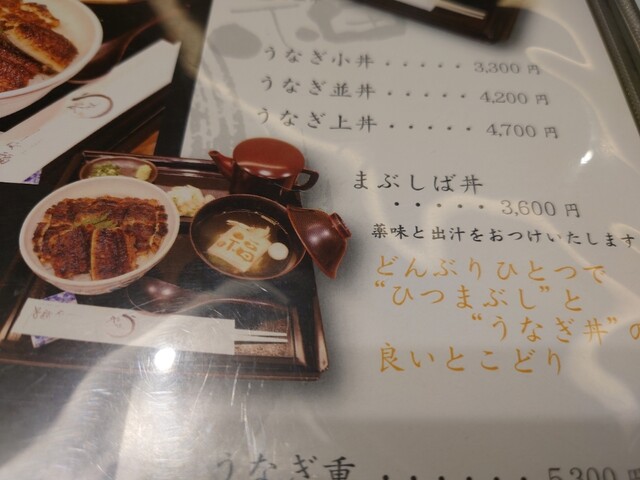 うなぎ小丼 ····· 3,300 円
うなぎ並丼 ····· 4,200 円
うなぎ上丼 ····· 4,700 円
まぶしば丼
····· 3,600 円
薬味と出汁をおつけいたします
どんぶりひとつで
“ひつまぶし”と
“うなぎ丼”の
良いとこどり
うなぎ重 ······ 5,300 円